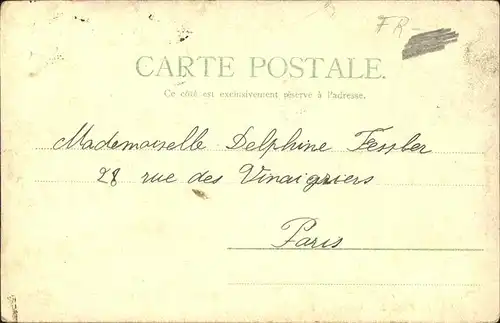 FR-
CARTE POSTALE.
Ce côté est exclusivement réservé à l'adresse.
Mademoiselle Delphine Fessler
28 rue des Vinaigriers
Paris